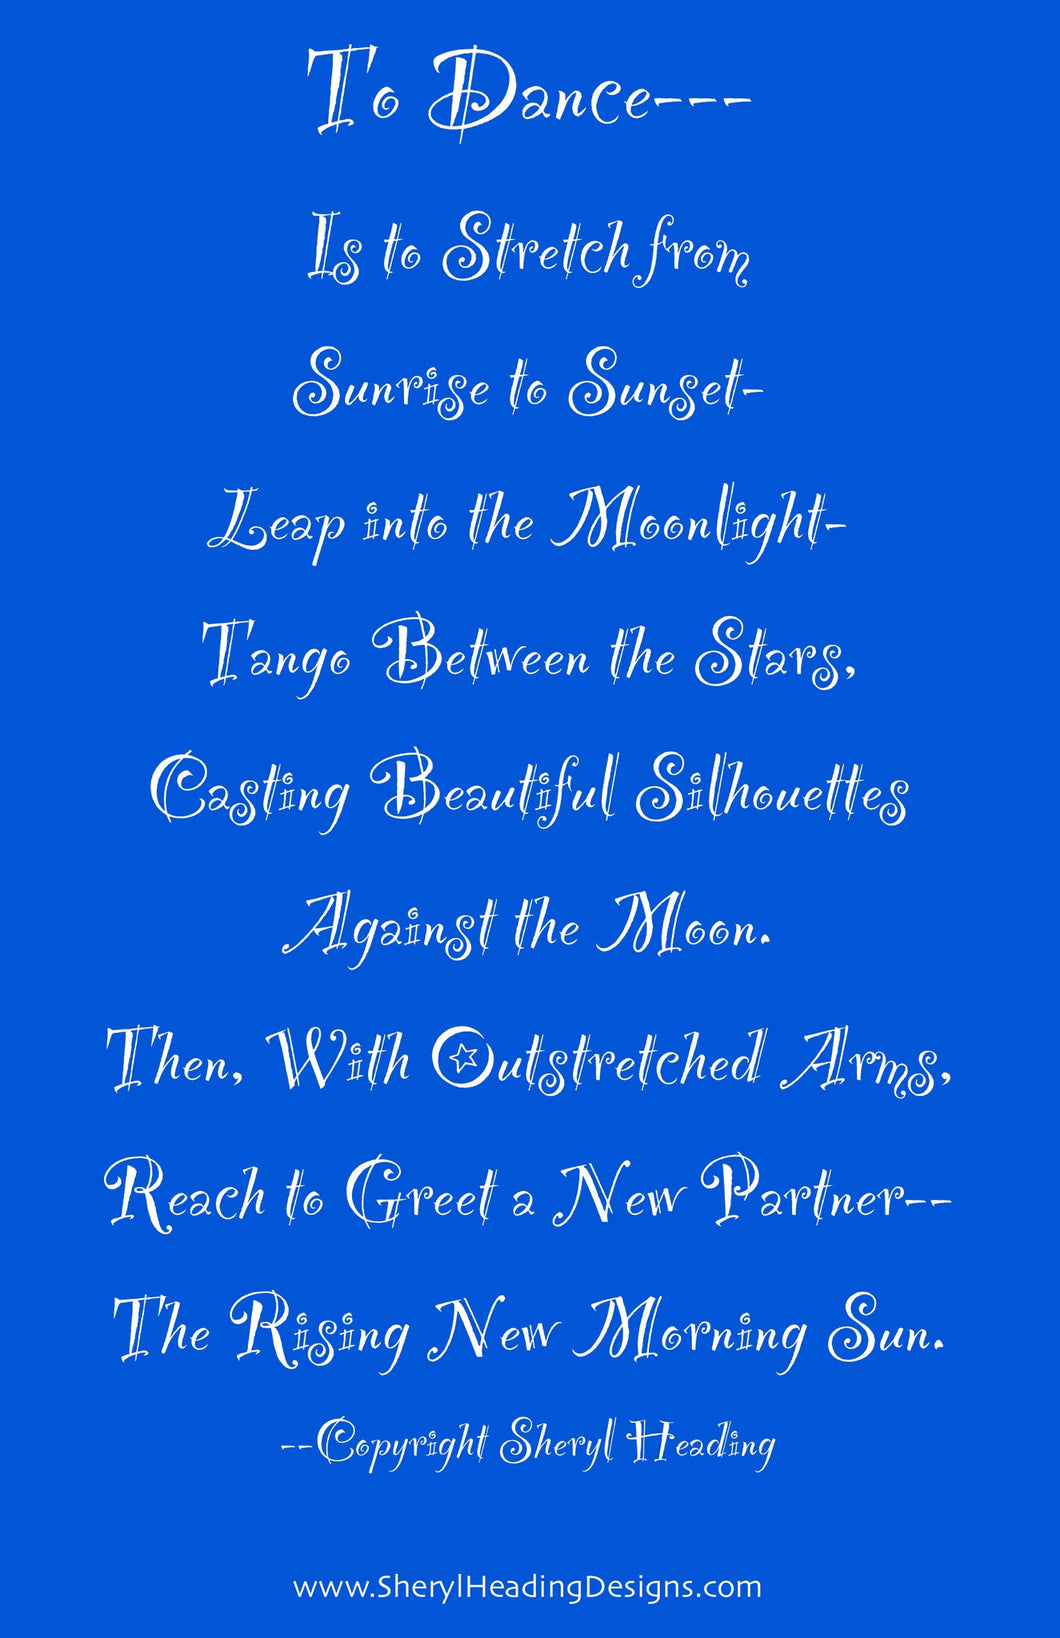 To Dance---
Is to Stretch from
Sunrise to Sunset-
Leap into the Moonlight-
Tango Between the Stars,
Casting Beautiful Silhouettes
Against the Moon.
Then, With Outstretched Arms,
Reach to Greet a New Partner--
The Rising New Morning Sun.
--Copyright Sheryl Heading
www.SherylHeadingDesigns.com